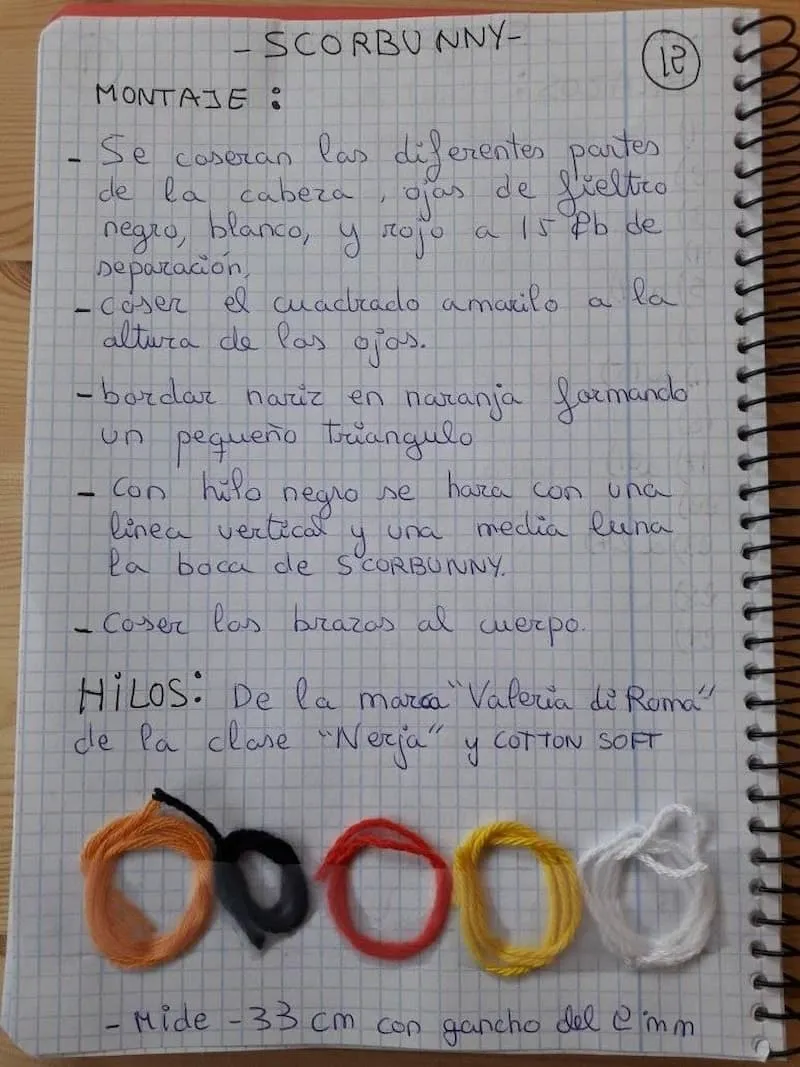 -SCORBUNNY-
12
MONTAJE :
- Se coseran las diferentes partes
de la cabeza, ojos de fieltro
negro, blanco, y rojo a 15 Pb de
separación,
- coser el cuadrado amarilo a la
altura de los ojos.
- bordar nariz en naranja formando
un pequeño triangulo
- Con hilo negro se hara con una
linea vertical y una media luna
la boca de SCORBUNNY.
- Coser los brazos al cuerpo.
HiLOS: De la marca "Valeria di Roma"
de la clase "Nerja" y COTTON SOFT
- Mide - 33 cm con gancho del 2 mm